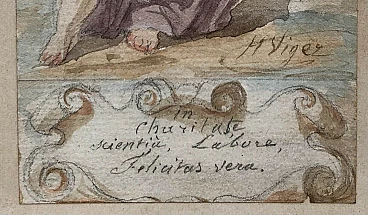 H Viger
in
Charitate
scientiâ, Labore,
Felicitas vera.